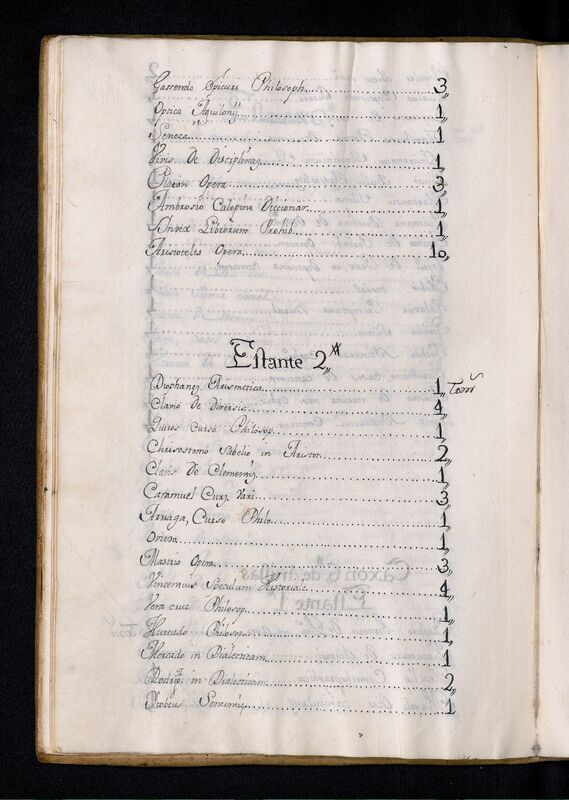 Gassendo Epicuri Philosoph. 3,,
Optica Aquilonij 1,,
Seneca 1,,
Vivis De Disciplinis 1
Platon Opera 3,,
Ambrosio Calepino Diccionar. 1,,
Index Librorum Prohib. 1,,
Aristoteles Opera 10,,
Estante 2,,
Arismetica 1,, Tom
Clavio De Diversis 4,,
Quiros Curso Philosop. 1,,
Chrisostomo Sabelio in Aristot. 2,,
Clavis De Clemenj 1,,
Caramuel Curs. Vari 3,,
Arriaga, Curso Philo. 1,,
Oviedo 1,,
Mastrio Opera 3,,
Vincencius Speculum Historiale 4,,
Vera cruz Philosop. 1,,
Hurtado Philosop. 1,,
Mercado in Dialecticam 1
in Dialecticam 2,,
1